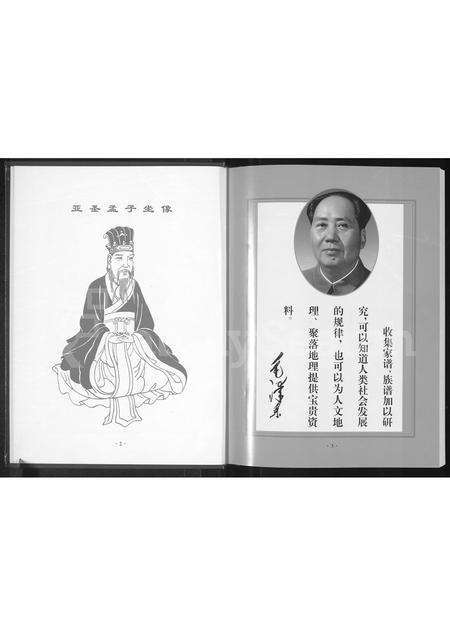 亚圣孟子坐像
- 2 -
收集家谱、族谱加以研
究,可以知道人类社会发展
的规律,也可以为人文地
理、聚落地理提供宝贵资
料。
毛泽东
- 3 -